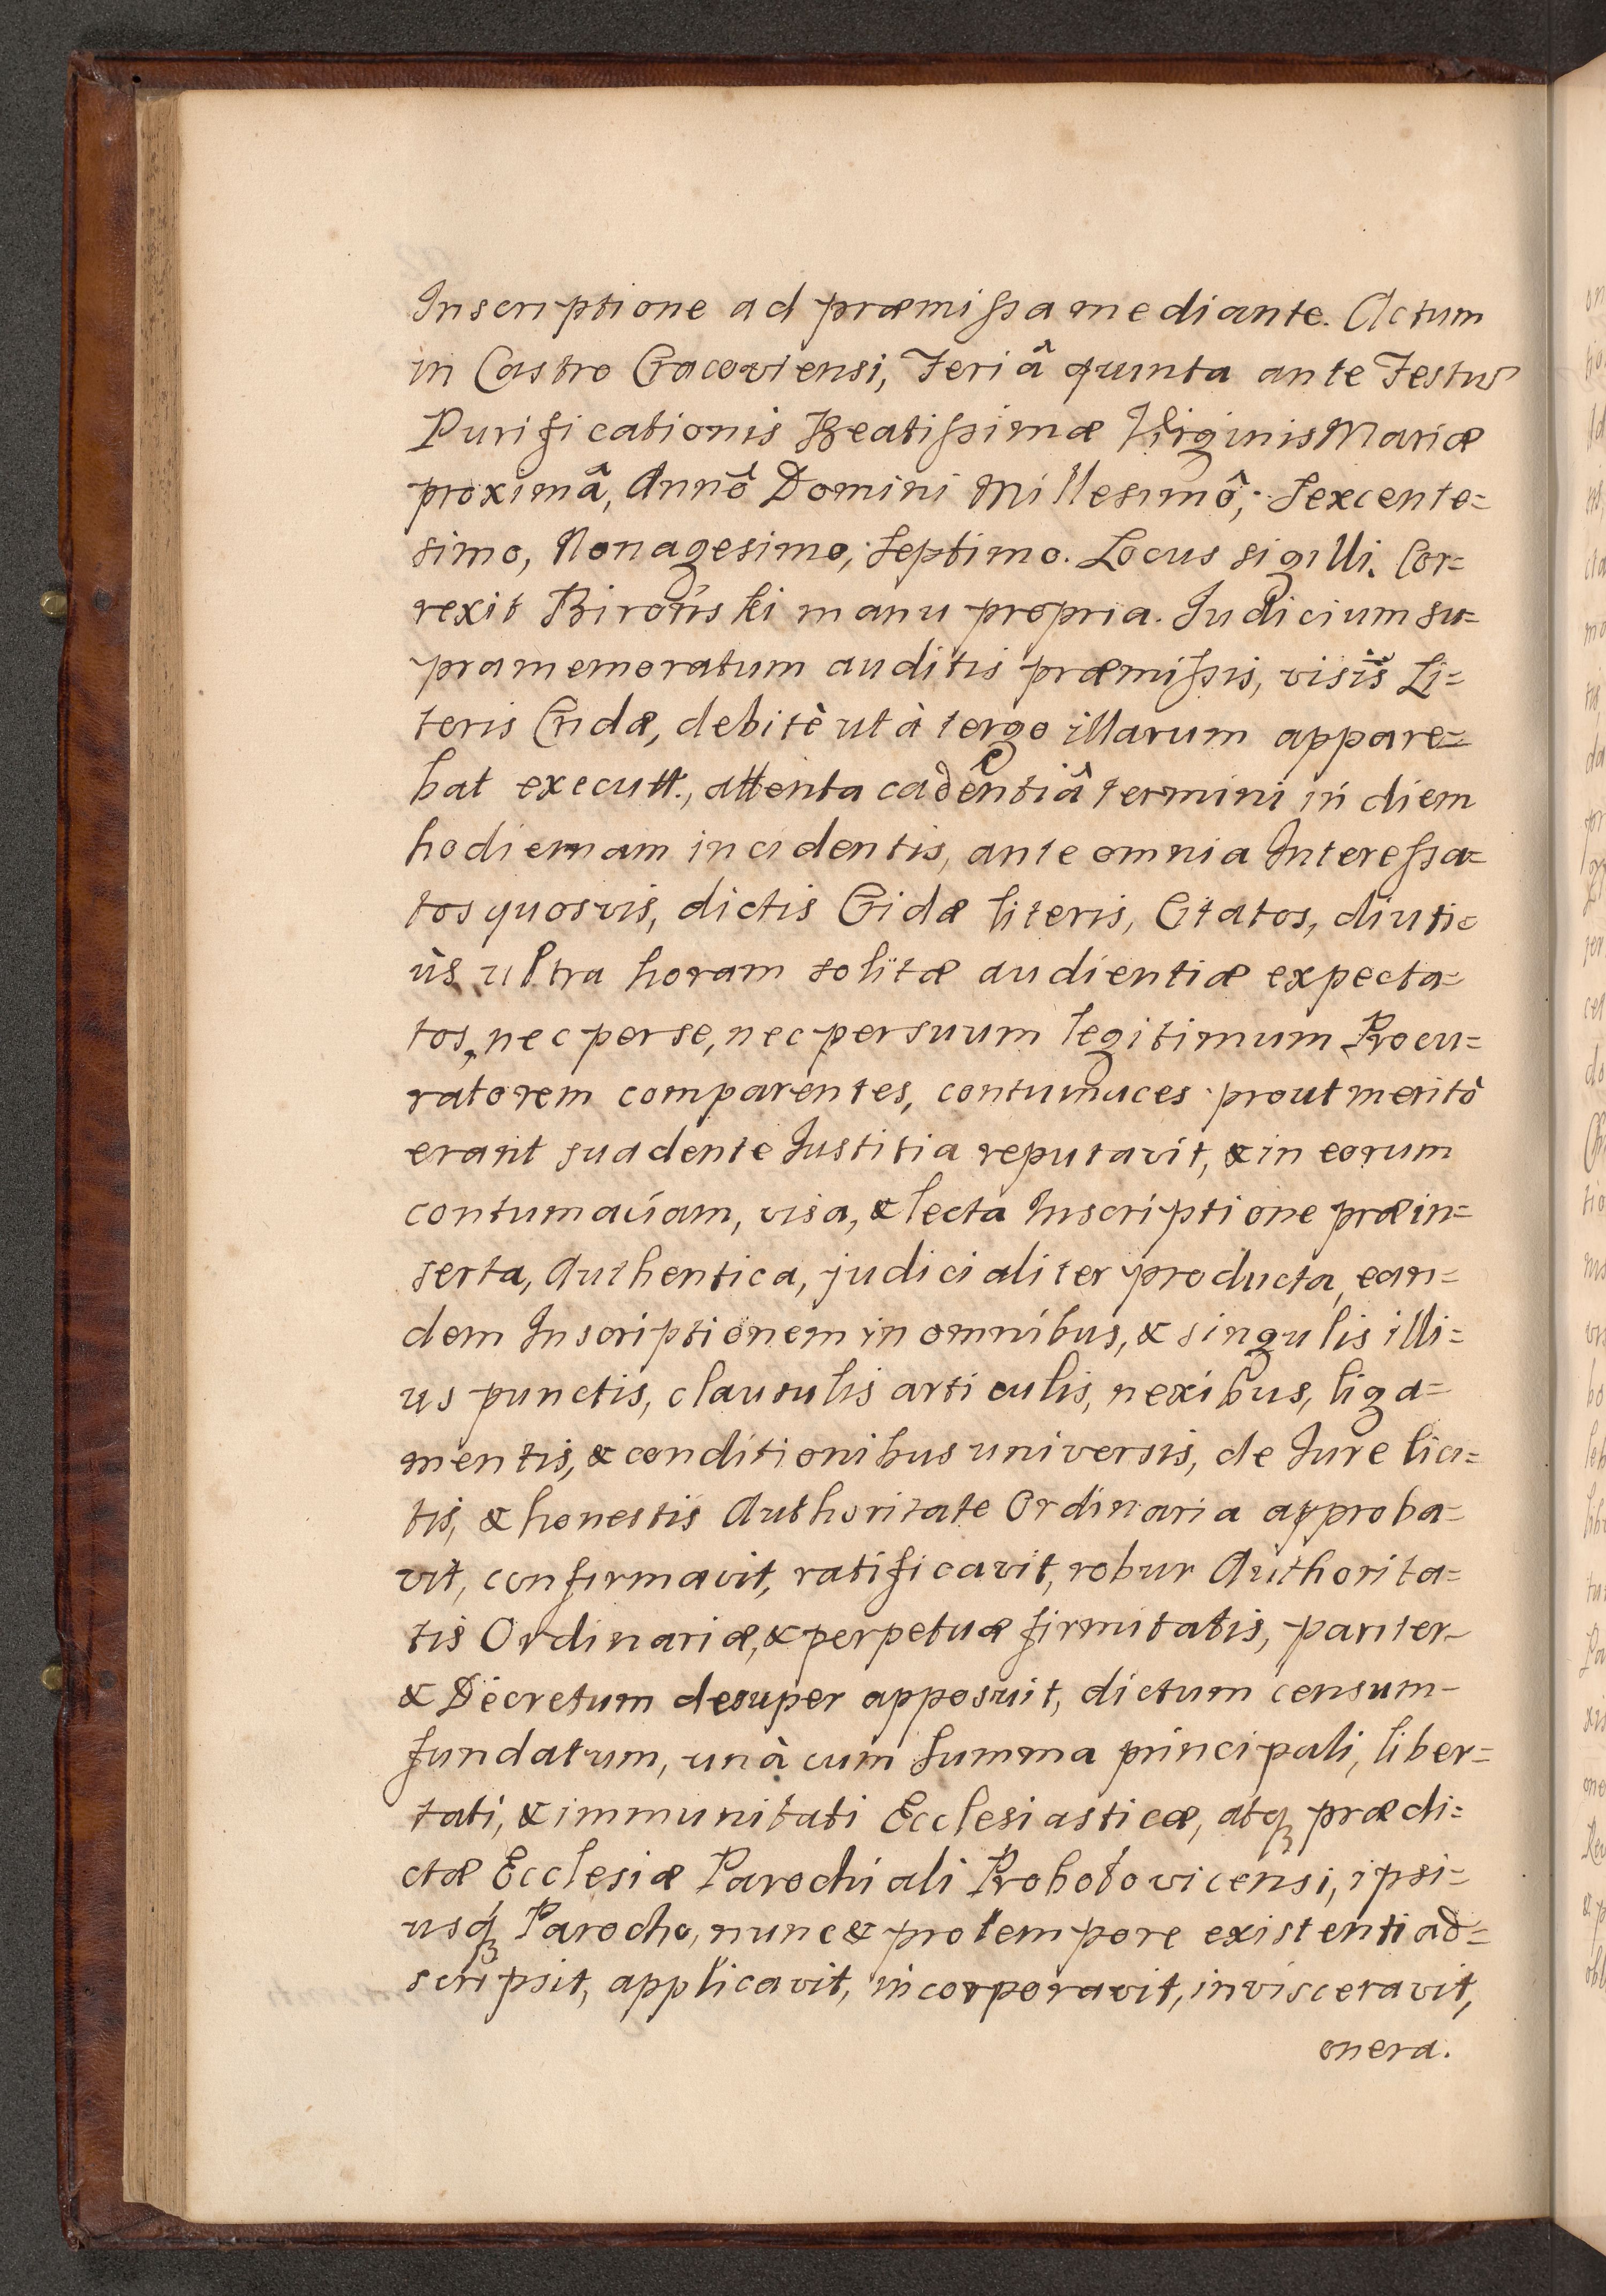 Inscriptione ad præmissa mediante. Actum
in Castro Cracoviensi, Feriâ quinta ante Festum
Purificationis Beatissimæ Virginis Mariæ
proximâ, Annô Domini Millesimô, Sexcente=
simo, Nonagesimo, Septimo. Locus sigilli. Cor=
rexit Biroński manu propria. Judicium su=
pramemoratum auditis præmissis, visis Li=
teris Cridæ, debitè ut à tergo illarum appare=
bat executt., attenta cadentiâ termini in diem
hodiernam incidentis, ante omnia Interessa=
tos quosvis, dictis Cridæ literis, Citatos, diuti=
ùs ultra horam solitæ audientiæ expecta=
tos, nec per se, nec per suum legitimum Procu=
ratorem comparentes, contumaces prout meritò
erant suadente Justitia reputavit, & in eorum
contumaciam, visa, & lecta Inscriptione præin=
serta, Authentica, judicialiter producta, ean=
dem Inscriptionem in omnibus, & singulis illi=
us punctis, clausulis articulis, nexibus, liga=
mentis, & conditionibus universis, de Jure lici=
tis, & honestis Authoritate Ordinaria approba=
vit, confirmavit, ratificavit, robur Authorita=
tis Ordinariæ, & perpetuæ firmitatis, pariter-
& Decretum desuper apposuit, dictum censum-
fundatum, unà cum summa principali, liber=
tati, & immunitati Ecclesiasticæ, atq́ prædi=
ctæ Ecclesiæ Parochiali Probołovicensi, ipsi=
usq́ Parocho, nunc & pro tempore existenti ad=
scripsit, applicavit, incorporavit, invisceravit,
onera.